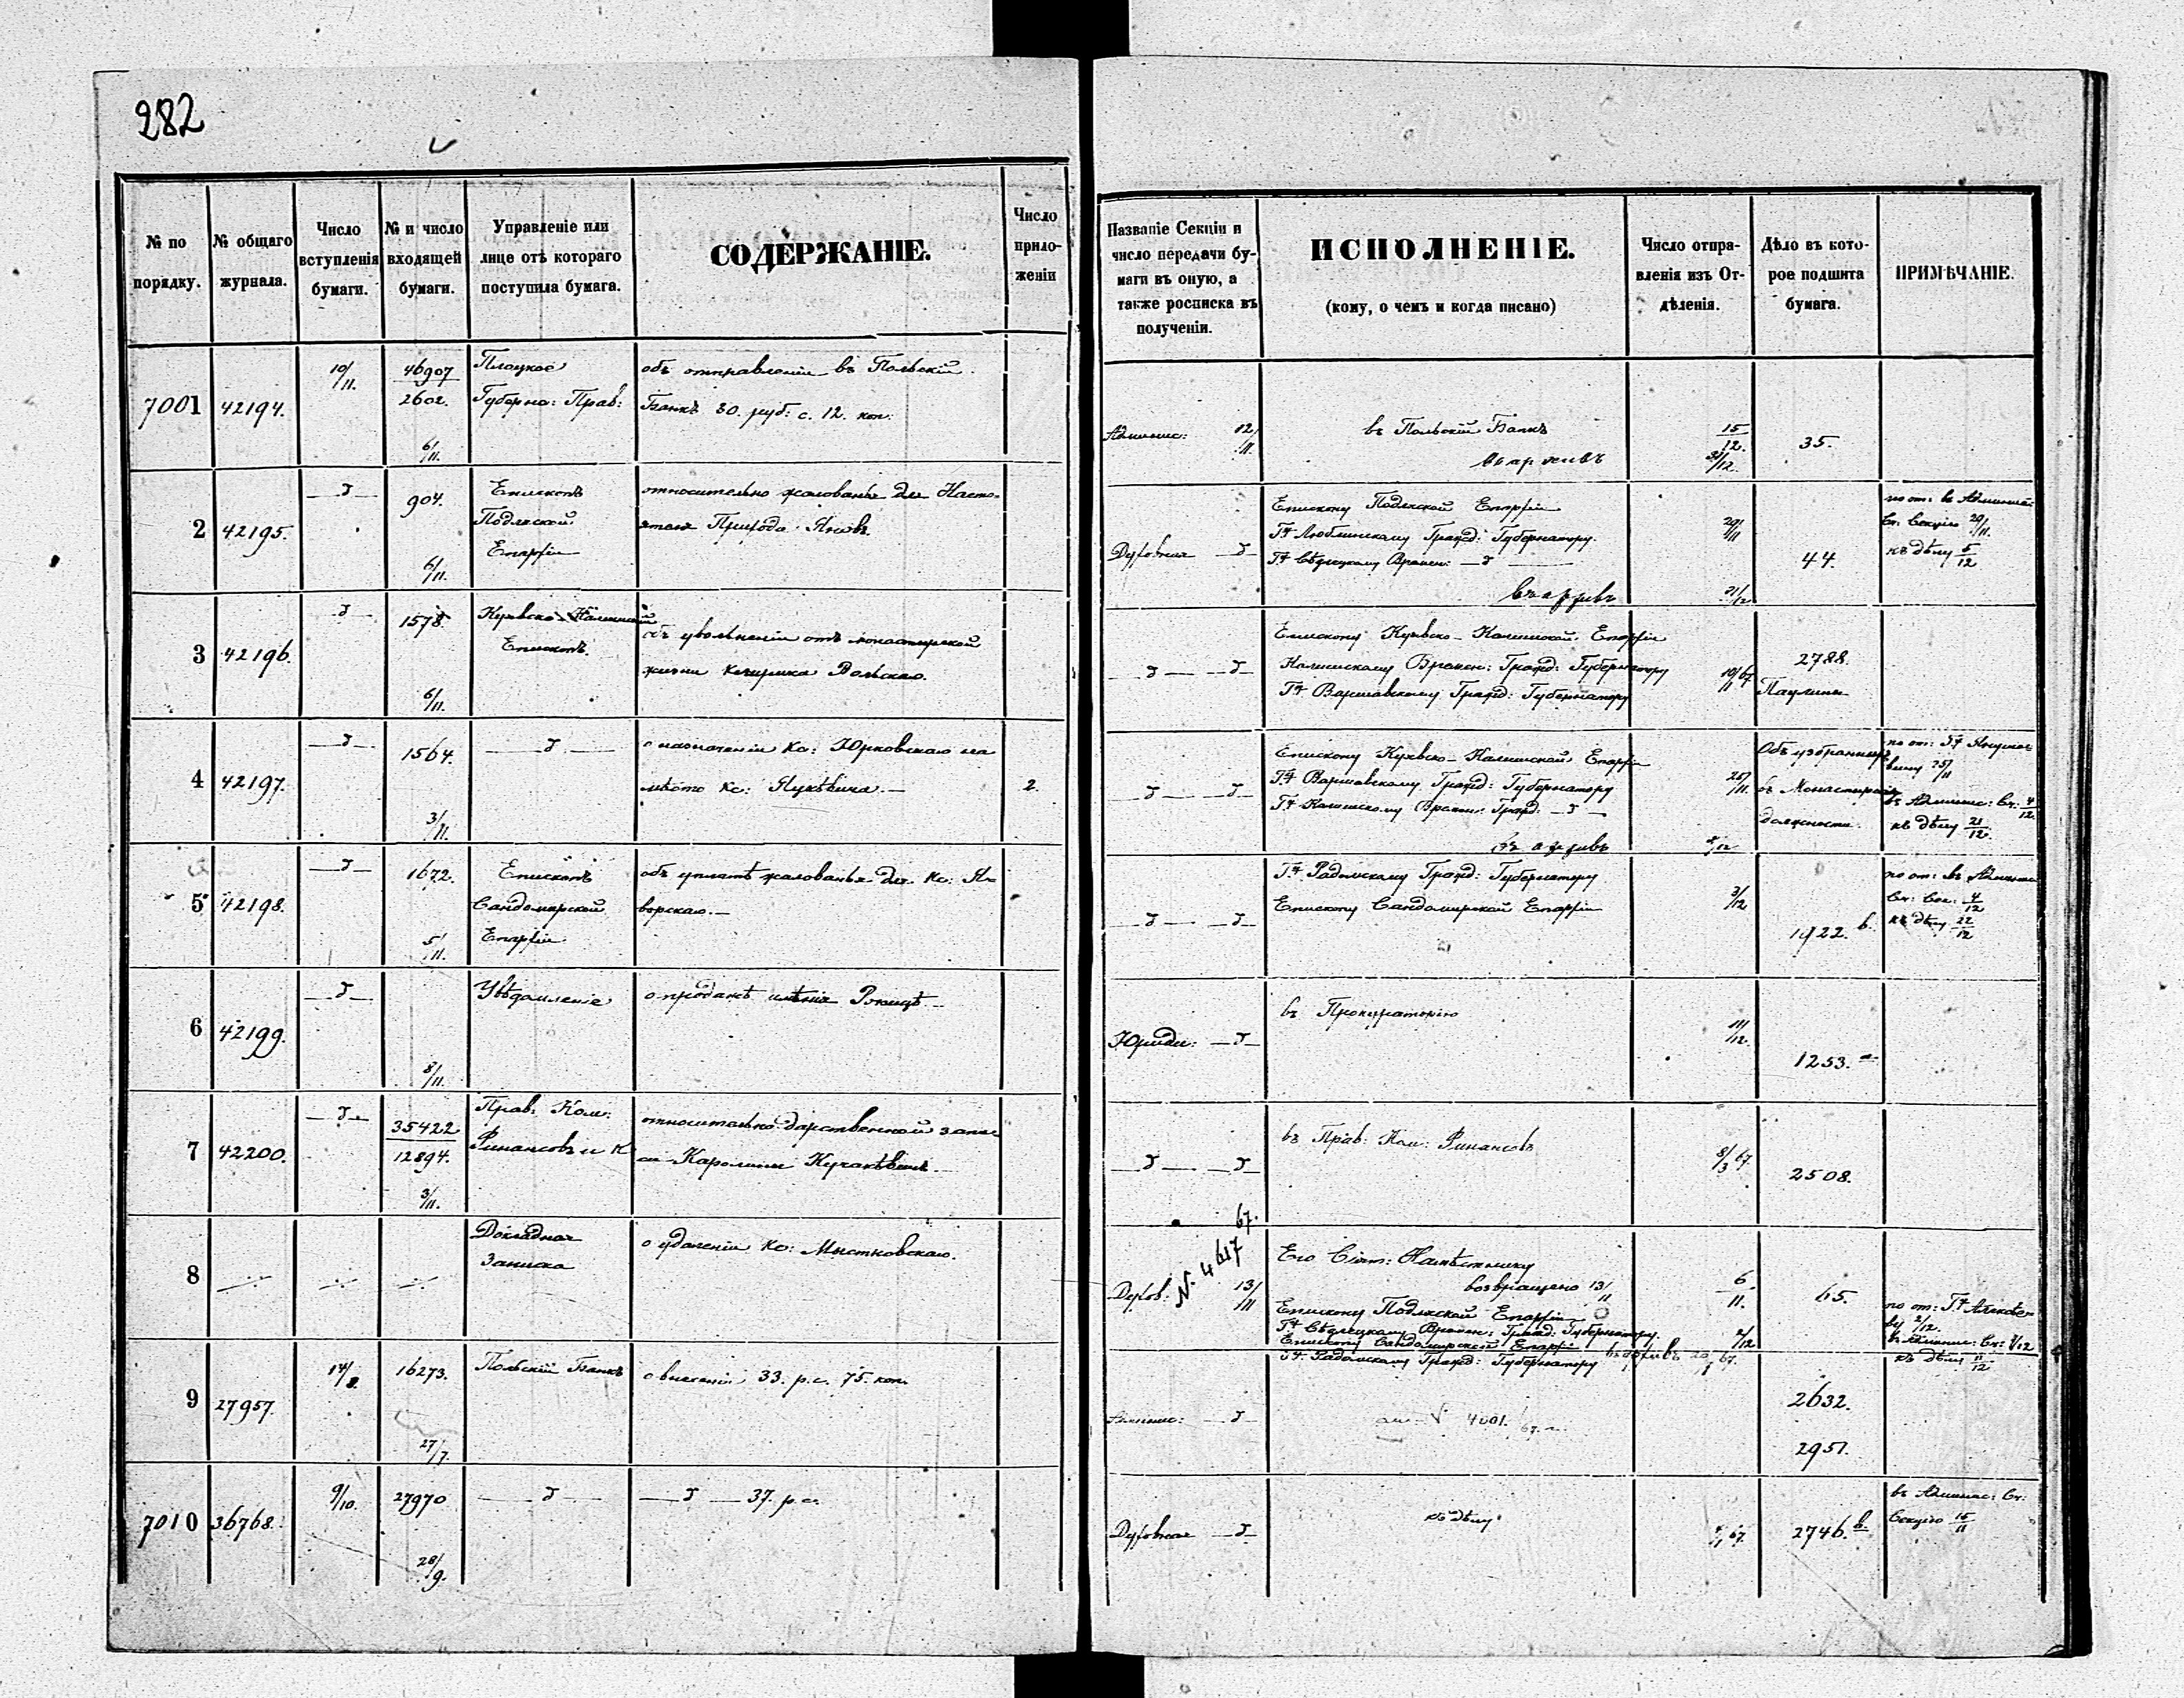 282
№ по порядку.
№ общаго журнала.
Число вступленія бумаги.
№ и число входящей бумаги.
Управленіе или лице отъ котораго поступила бумага.
СОДЕРЖАНІЕ.
Число приложеніи
7001 42194. 10/11. 46907
2602.
6/11.
Плоцкое
Губерн: Прав:
объ отправленіи въ Польскій
Банкъ 30. руб: с. 12. коп:
2 42195. 904.
6/11.
Епископъ
Подляской
Епархіи
относительно жалованья для Насто-
ятеля Прихода Яновъ.
3 42196. 1578.
6/11.
Куявско-Калишскій
Епископъ.
объ увольненіи отъ монастырской
жизни клирика Вольскаго.
4 42197. 1564.
3/11.
о назначеніи Кс: Юрковскаго на
мѣсто Кс:
2.
5 42198. 1672.
5/11.
Епископъ
Сандомирской
Епархіи
объ уплатѣ жалованья для Кс: Я-
ворскаго.—
6 42199.
8/11.
Увѣдомленіе
о продажѣ имѣнія
7 42200. 35422
12894.
3/11.
Прав: Ком:
Финансовъ и К
относительно дарственной запи-
си Каролины
8
Докладная
Записка
о удаленіи Кс: Мыстковскаго.
9 27957. 14/8. 16273.
27/7.
Польскій Банкъ
о внесеніи 33. р.с. 75. коп.
7010 36768. 9/10. 27970
28/9.
37. р.с.
Названіе Секціи и число передачи бумаги въ оную, а также росписка въ полученіи.
ИСПОЛНЕНІЕ.
(кому, о чемъ и когда писано)
Число отправленія изъ Отдѣленія.
Дѣло въ которое подшита бумага.
ПРИМѢЧАНІЕ.
Админис: 12/11.
въ Польскій Банкъ
въ архивъ
15/12.
31/12.
35.
Духовная
Епископу Подляской Епархіи
Гну Люблинскому Гражд: Губернатору.
Гну Сѣдлецкому Времен:
въ архивъ
29/11
31/12
44.
по от: въ Админис
Сч: Секцію 29/11.
къ дѣлу 5/12
Епископу Куявско-Калишской Епархіи
Калишскому Времен: Гражд: Губернатору
Гну Варшавскому Гражд: Губернатору
10/11 67.
2788.
Паулины
Епископу Куявско-Калишской Епархіи
Гну Варшавскому Гражд: Губернатору
Гну Калишскому Времен: Гражд:
въ архивъ
25/11.
Объ избраніи
въ Монастырскія
должности
25/11
въ Админис: Сч: 4/12.
къ дѣлу 21/12.
Гну Радомскому Гражд: Губернатору
Епископу Сандомирской Епархіи
3/12
1922. b.
по от: въ Админис
Сч: Сек: 4/12
къ дѣлу 22/12
Юриди:
въ Прокураторію
11/12.
1253.
въ Прав: Ком: Финансовъ
8/3 67.
2508.
№ 4617 67.
Духов: 13/11
Его Сіят: Намѣстнику
возвращено 13/11
Епископу Подляской Епархіи
Гну Сѣдлецкому Времен: Гражд: Губернатору.
Епископу Сандомирской Епархіи
Гну Радомскому Гражд: Губернатору въ архивъ
6/11.
2/12
65.
2/12.
въ Админис: Сч:
къ дѣлу 11/12
Админис:
4001. 67.
2632.
2951.
Духовная
къ дѣлу
67.
2746. b.
въ Админис: Сч:
Секцію 15/11